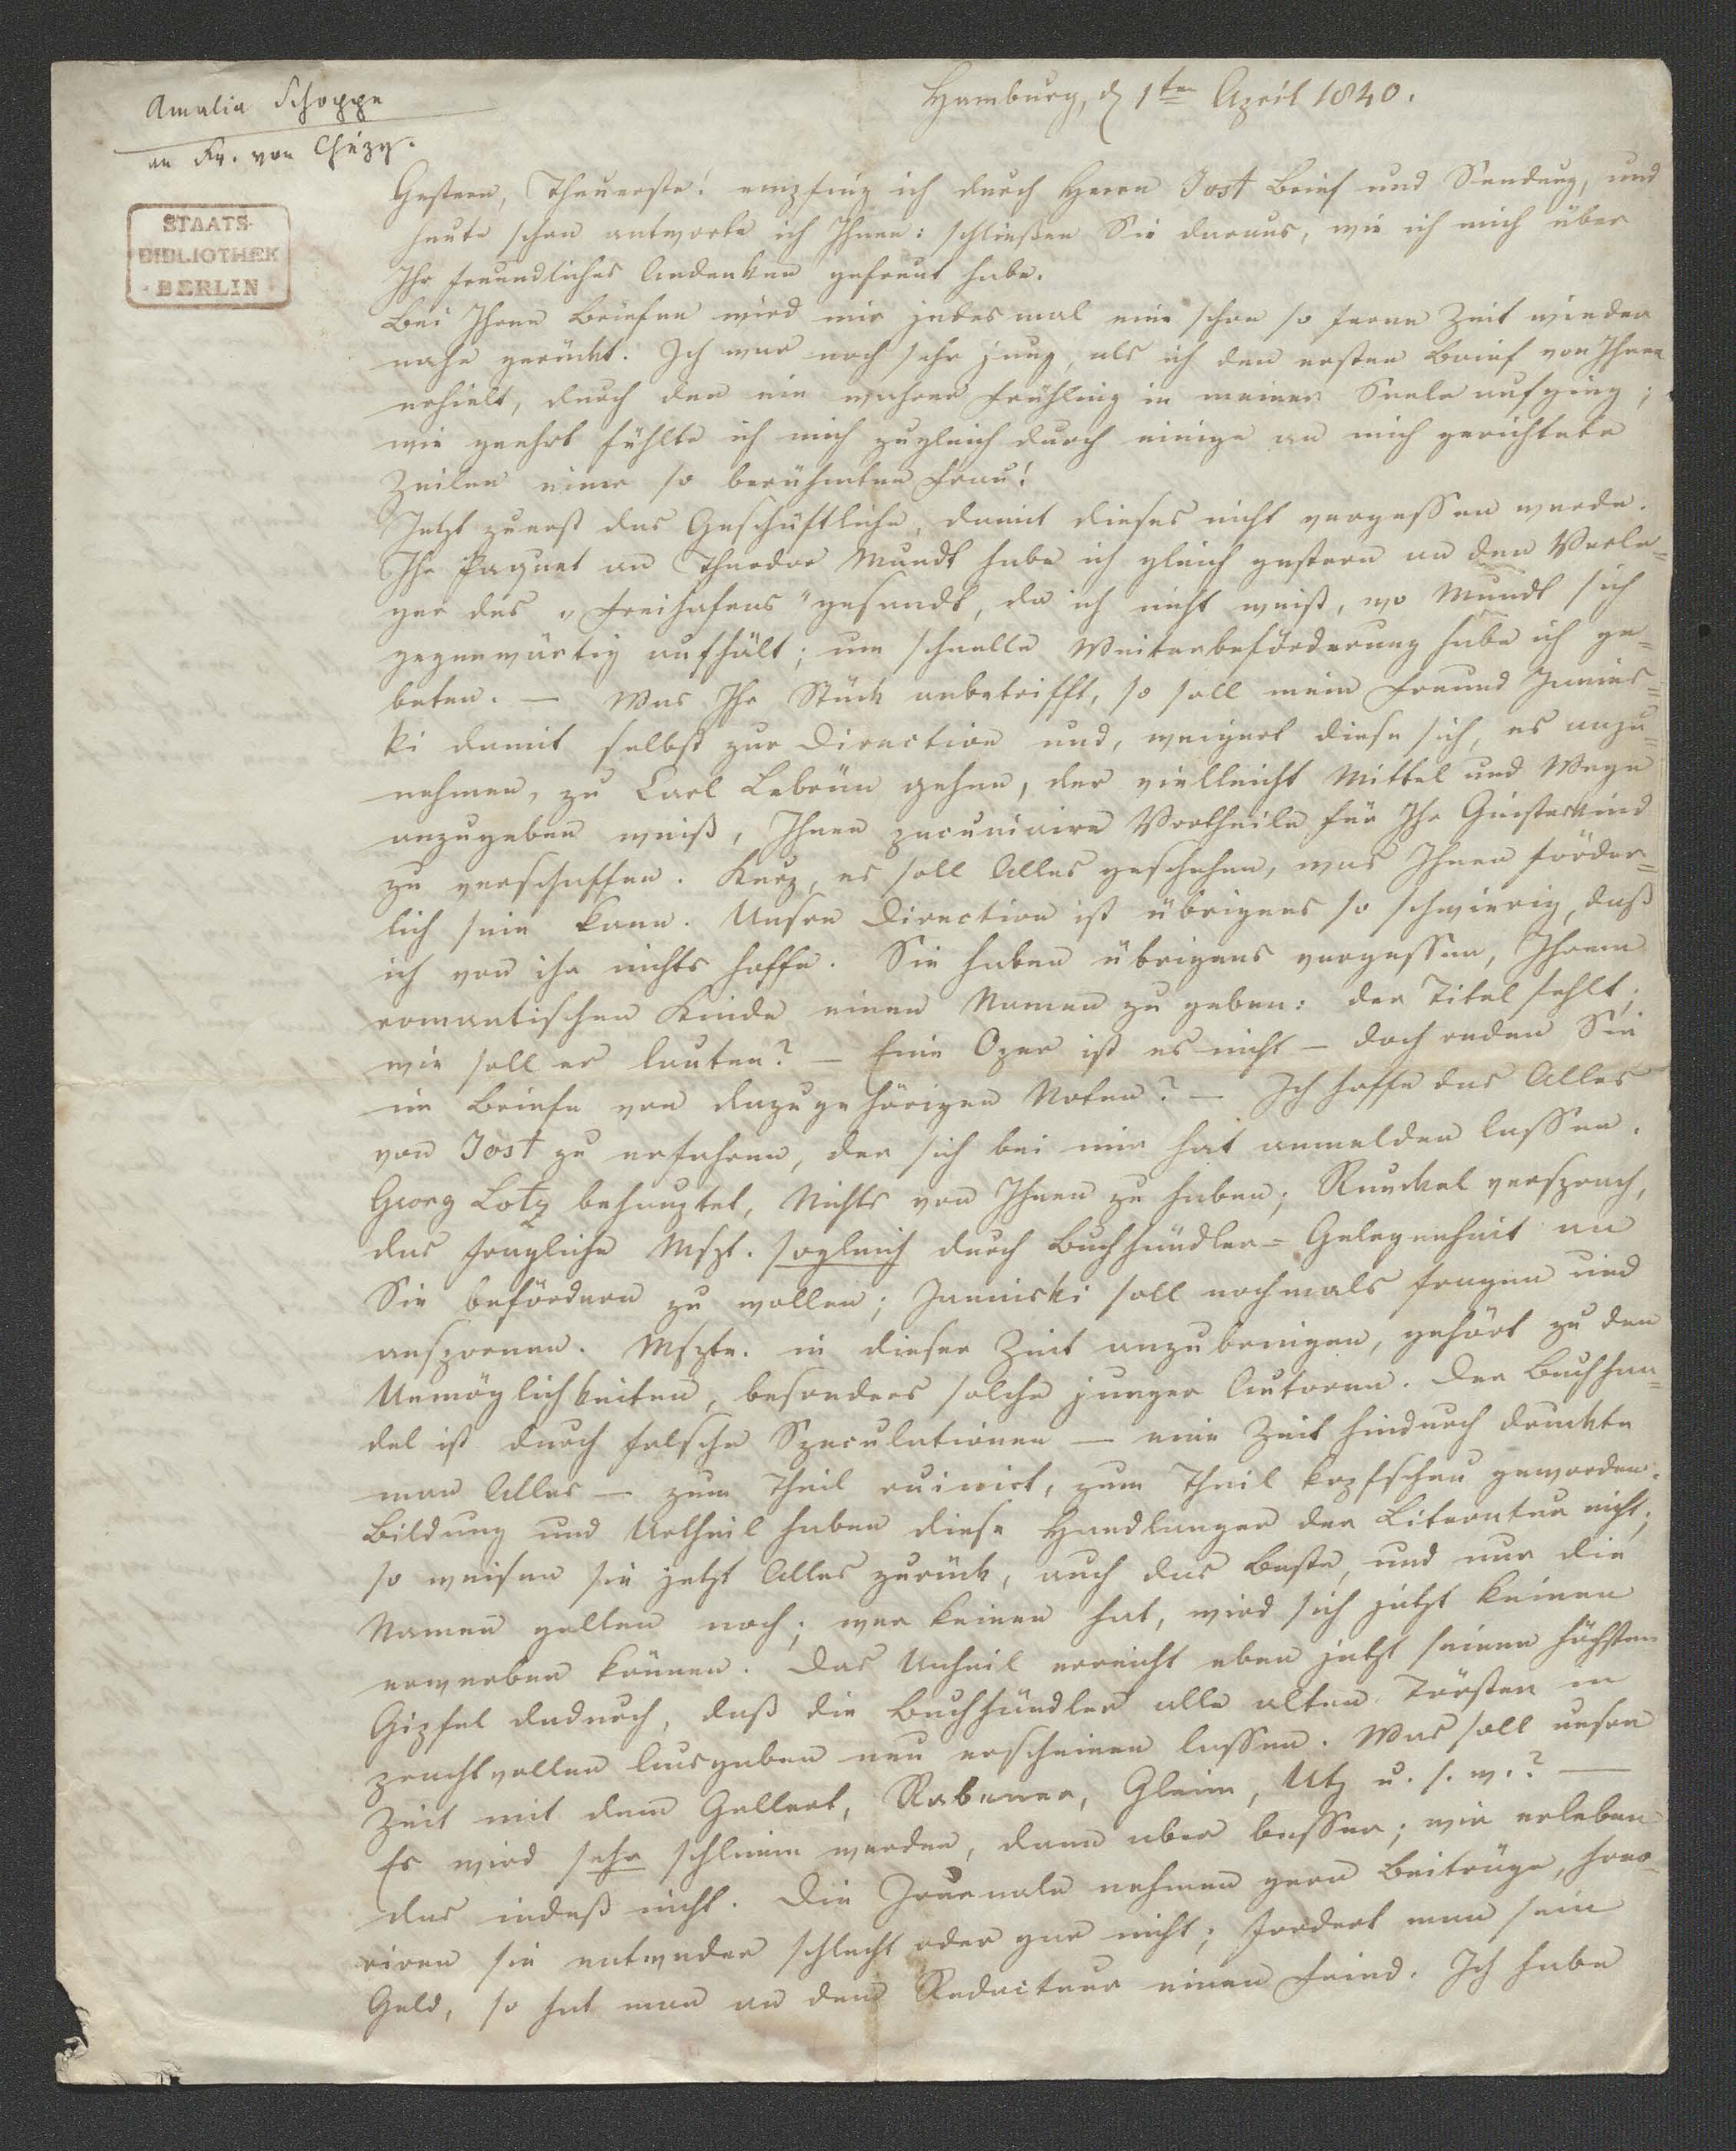 Amalia Schoppe
an Fr. von Chézy.
STAATS-
BIBLIOTHEK
BERLIN
Hamburg, d 1ten April 1840.
Gestern, Theuerste! empfing ich durch Herrn Jost Brief und Sendung, und
heute schon antworte ich Ihnen: schließen Sie daraus, wie ich mich über
Ihr freundliches Andenken gefreut habe.
Bei Ihren Briefen wird mir jedesmal eine schon so ferne Zeit wieder
nahe gerückt. Ich war noch sehr jung, als ich den ersten Brief von Ihnen
erhielt, durch den ein wahrer Frühling in meiner Seele aufging;
wie geehrt fühlte ich mich zugleich durch einige an mich gerichtete
Zeilen einer so berühmten Frau!
Jetzt zuerst das Geschäftliche, damit dieses nicht vergessen werde.
Ihr Paquet an Theodor Mundt habe ich gleich gestern an den Verle=
ger des „Freihafens" gesandt, da ich nicht weiß, wo Mundt sich
gegenwärtig aufhält; um schnelle Weiterbeförderung habe ich ge=
beten. — Was Ihr Stück anbetrifft, so soll mein Freund Janins=
ki damit selbst zur Direction und, weigert diese sich, es anzu=
nehmen, zu Carl Lebrün gehen, der vielleicht Mittel und Wege
anzugeben weiß, Ihnen pecuniaire Vortheile für Ihr Geisteskind
zu verschaffen. Kurz, es soll Alles geschehen, was Ihnen förder=
lich sein kann. Unsre Direction ist übrigens so schwierig, daß
ich von ihr nichts hoffe. Sie haben übrigens vergessen, Ihrem
romantischen Kinde einen Namen zu geben: der Titel fehlt;
wie soll er lauten? — Eine Oper ist es nicht — doch reden Sie
im Briefe von dazugehörigen Noten? — Ich hoffe das Alles
von Jost zu erfahren, der sich bei mir hat anmelden lassen.
Georg Lotz behauptet, Nichts von Ihnen zu haben; Runckel versprach,
das fragliche Mspt. sogleich durch Buchhändler=Gelegenheit an
Sie befördern zu wollen; Janinski soll nochmals fragen und
anspornen. Mspte. in dieser Zeit anzubringen, gehört zu den
Unmöglichkeiten, besonders solche junger Autoren. Der Buchhan=
del ist durch falsche Speculationen — eine Zeit hindurch druckte
man Alles — zum Theil ruinirt, zum Theil kopfscheu geworden.
Bildung und Urtheil haben diese Handlanger der Literatur nicht;
so weisen sie jetzt Alles zurück, auch das Beste, und nur die
Namen gelten noch; wer keinen hat, wird sich jetzt keinen
erwerben können. Das Unheil erreicht eben jetzt seinen höchsten
Gipfel dadurch, daß die Buchhändler alle alten Tröster in
prachtvollen Ausgaben neu erscheinen lassen. Was soll unsre
Zeit mit dem Gellert, Rabener, Gleim, Utz u. s. w.? —
Es wird sehr schlimm werden, dann aber besser; wir erleben
das indeß nicht. Die Journale nehmen gern Beiträge, hono=
riren sie entweder schlecht oder gar nicht; fordert man sein
Geld, so hat man an dem Redacteur einen Feind. Ich habe